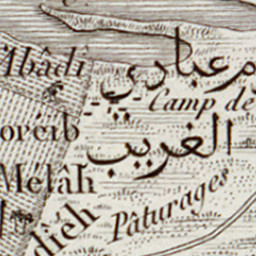 Abâdî
م عبادي
Camp de
oreïb
الغريب
Melâh
Pâturages
dieh